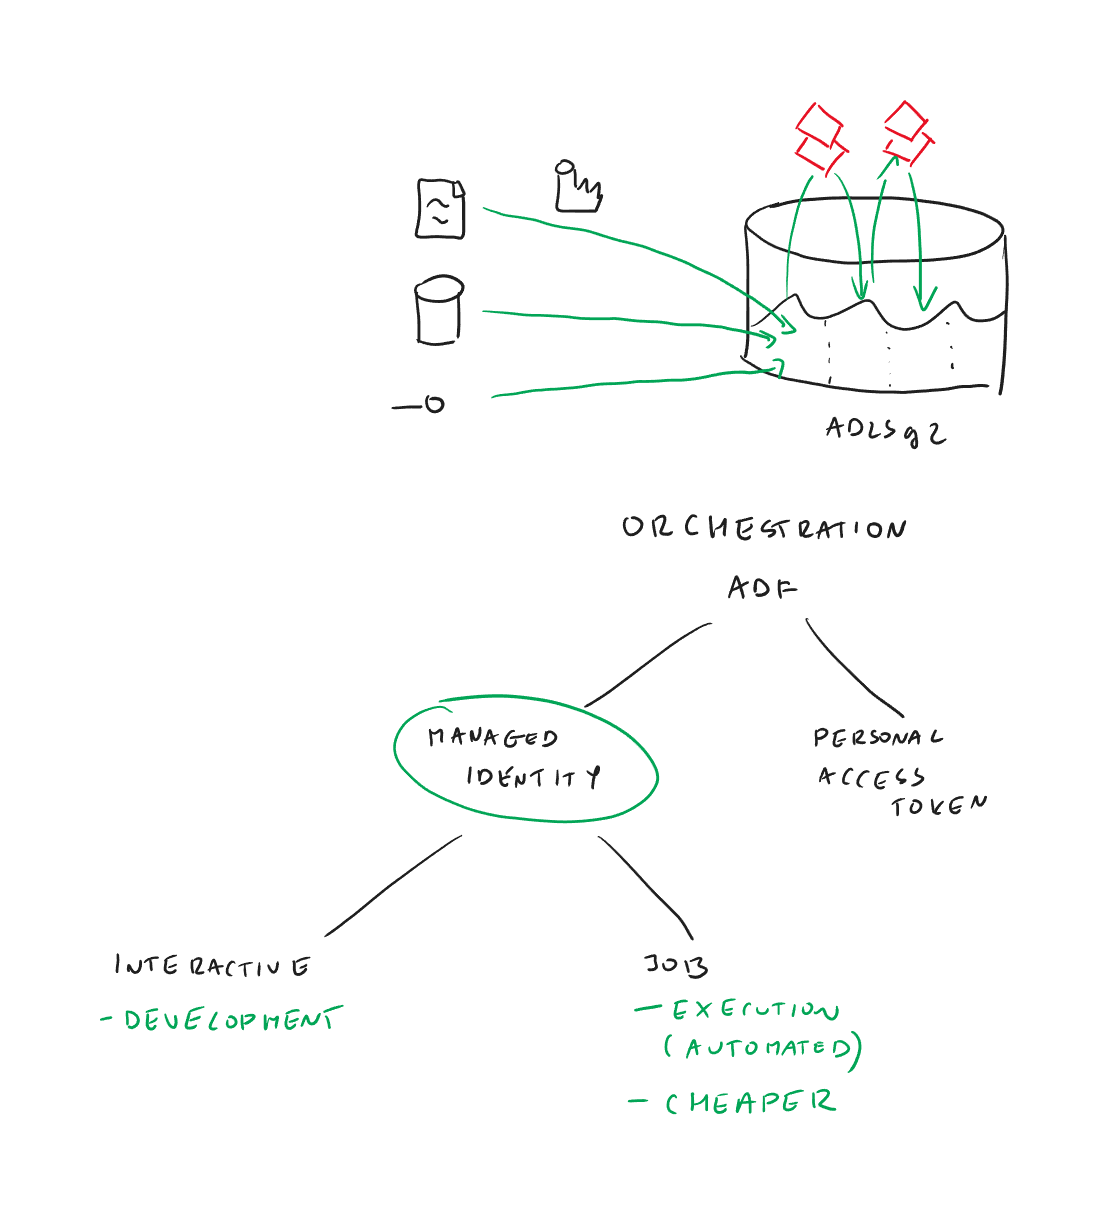 ADLSg2
ORCHESTRATION
ADF
MANAGED
IDENTITY
PERSONAL
ACCESS
TOKEN
INTERACTIVE
- DEVELOPMENT
JOB
- EXECUTION
(AUTOMATED)
- CHEAPER